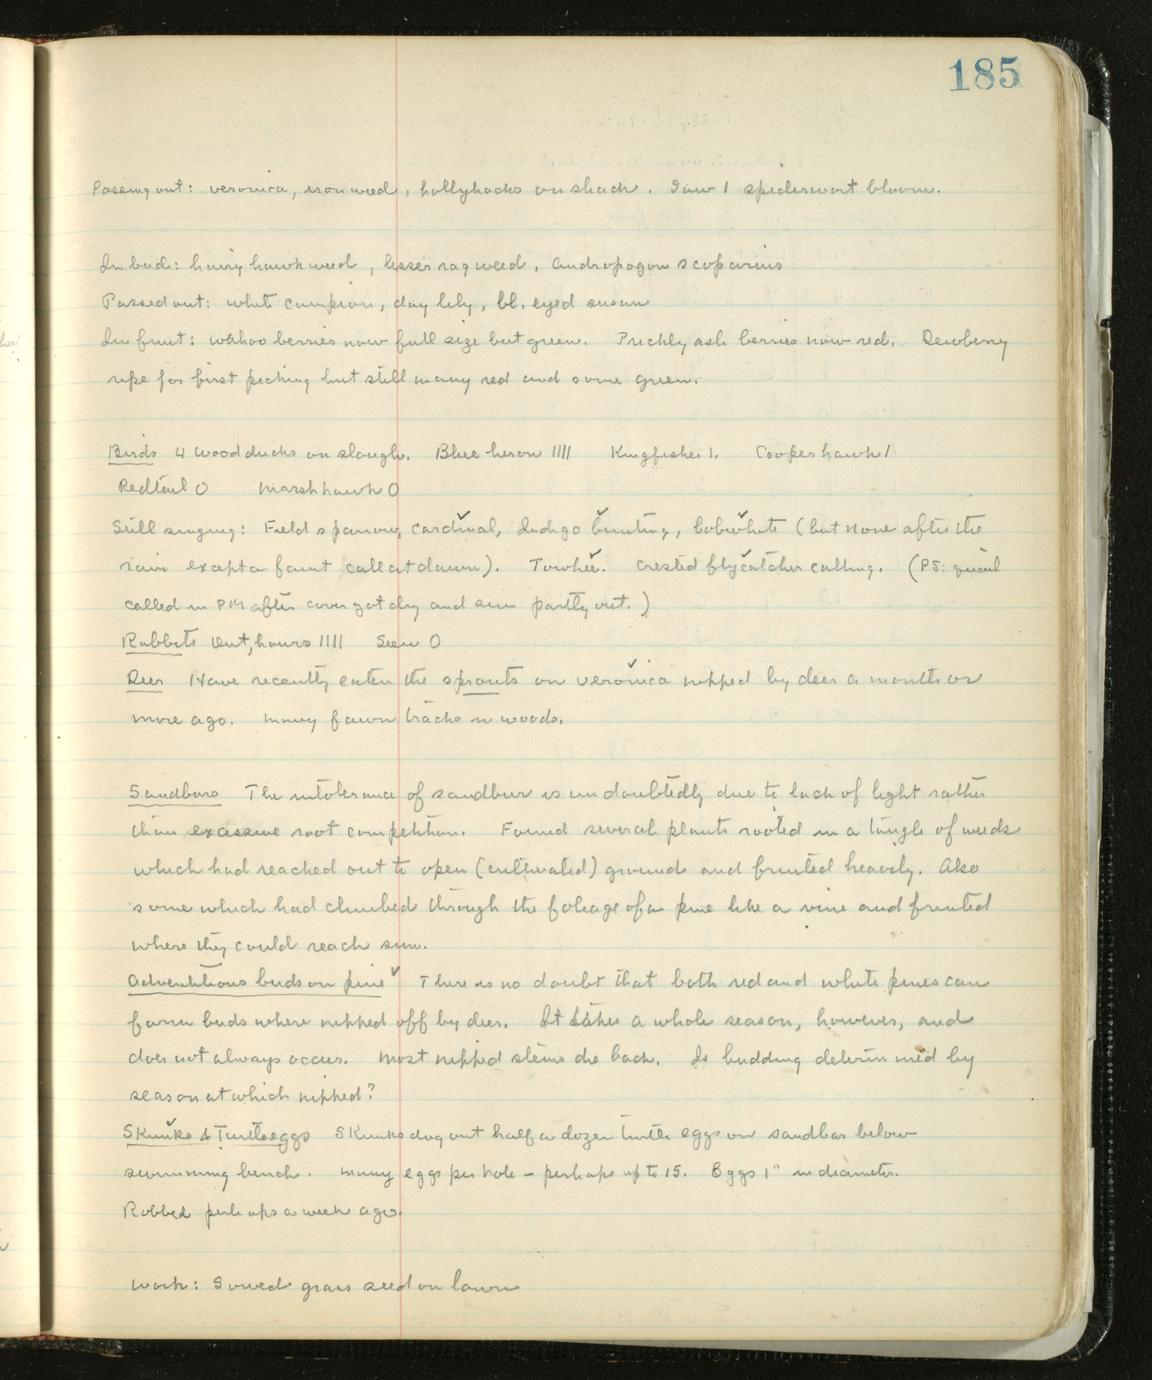 185
Passing out: veronica, ironweed, hollyhocks on shack. Saw 1 spiderwort bloom.
In bud: hairy hawkweed, lesser ragweed, andropogon scoparius
Passed out: white campion, day lily, bl. eyed susan
In fruit: wahoo berries now full size but green. Prickly ash berries now red. Dewberry
ripe for first picking but still many red and some green.
Birds 4 wood ducks on slough. Blue heron 1111 Kingfisher 1. Cooper hawk 1
Redtail 0 Marsh hawk 0
Still singing: Field sparrow, cardinal, Indigo bunting, bobwhite (but none after the
rain except a faint call at dawn). Towhee. Crested flycatcher calling. (PS: quail
called in PM after cover got dry and sun partly out.)
Rabbits Out, hours 1111 Seen 0
Deer Have recently eaten the sprouts on veronica nipped by deer a month or
more ago. Many fawn tracks in woods.
Sandburs The intolerance of sandbur is undoubtedly due to lack of light rather
than excessive root competition. Found several plants rooted in a tangle of weeds
which had reached out to open (cultivated) ground and fruited heavily. Also
some which had climbed through the foliage of a pine like a vine and fruited
where they could reach sun.
Adventitious buds on pine There is no doubt that both red and white pines can
form buds where nipped off by deer. It takes a whole season, however, and
does not always occur. Most nipped stems die back. Is budding determined by
season at which nipped?
Skunks & Turtle eggs Skunks dug out half a dozen turtle eggs on sandbar below
swimming beach. Many eggs per hole - perhaps up to 15. Eggs 1" in diameter.
Robbed perhaps a week ago.
Work: Sowed grass seed on lawn